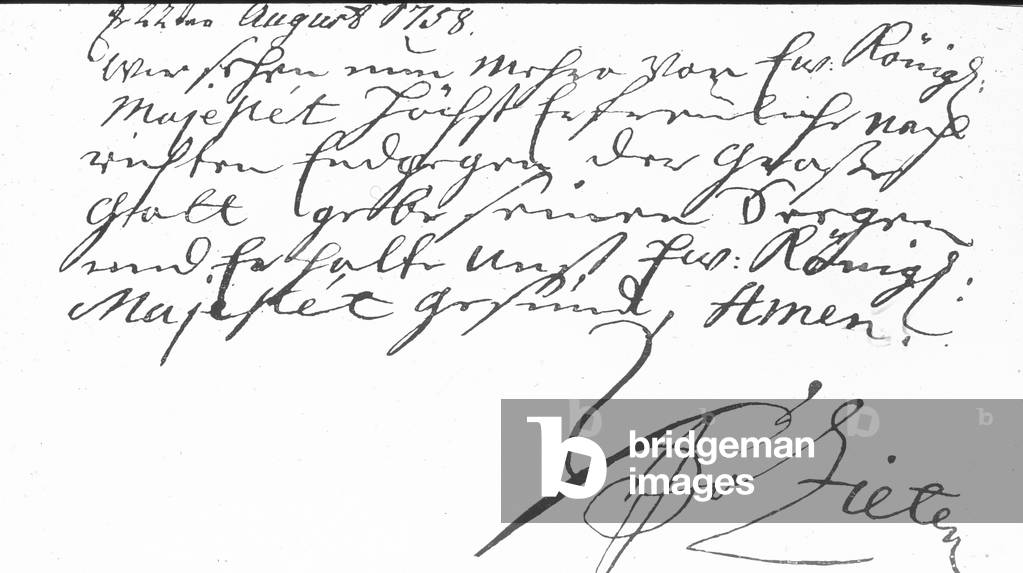 22ten August 1758.
Wir sehen nun Mehro Von Ew: Königl:
Majestét Höchst Erfreuliche nach
richten Endgegen der Große
Gott gebe seinen Seegen
und Erhalte Unß Ew: Königl:
Majestét gesund, Amen.
Zieten
bridgeman
images